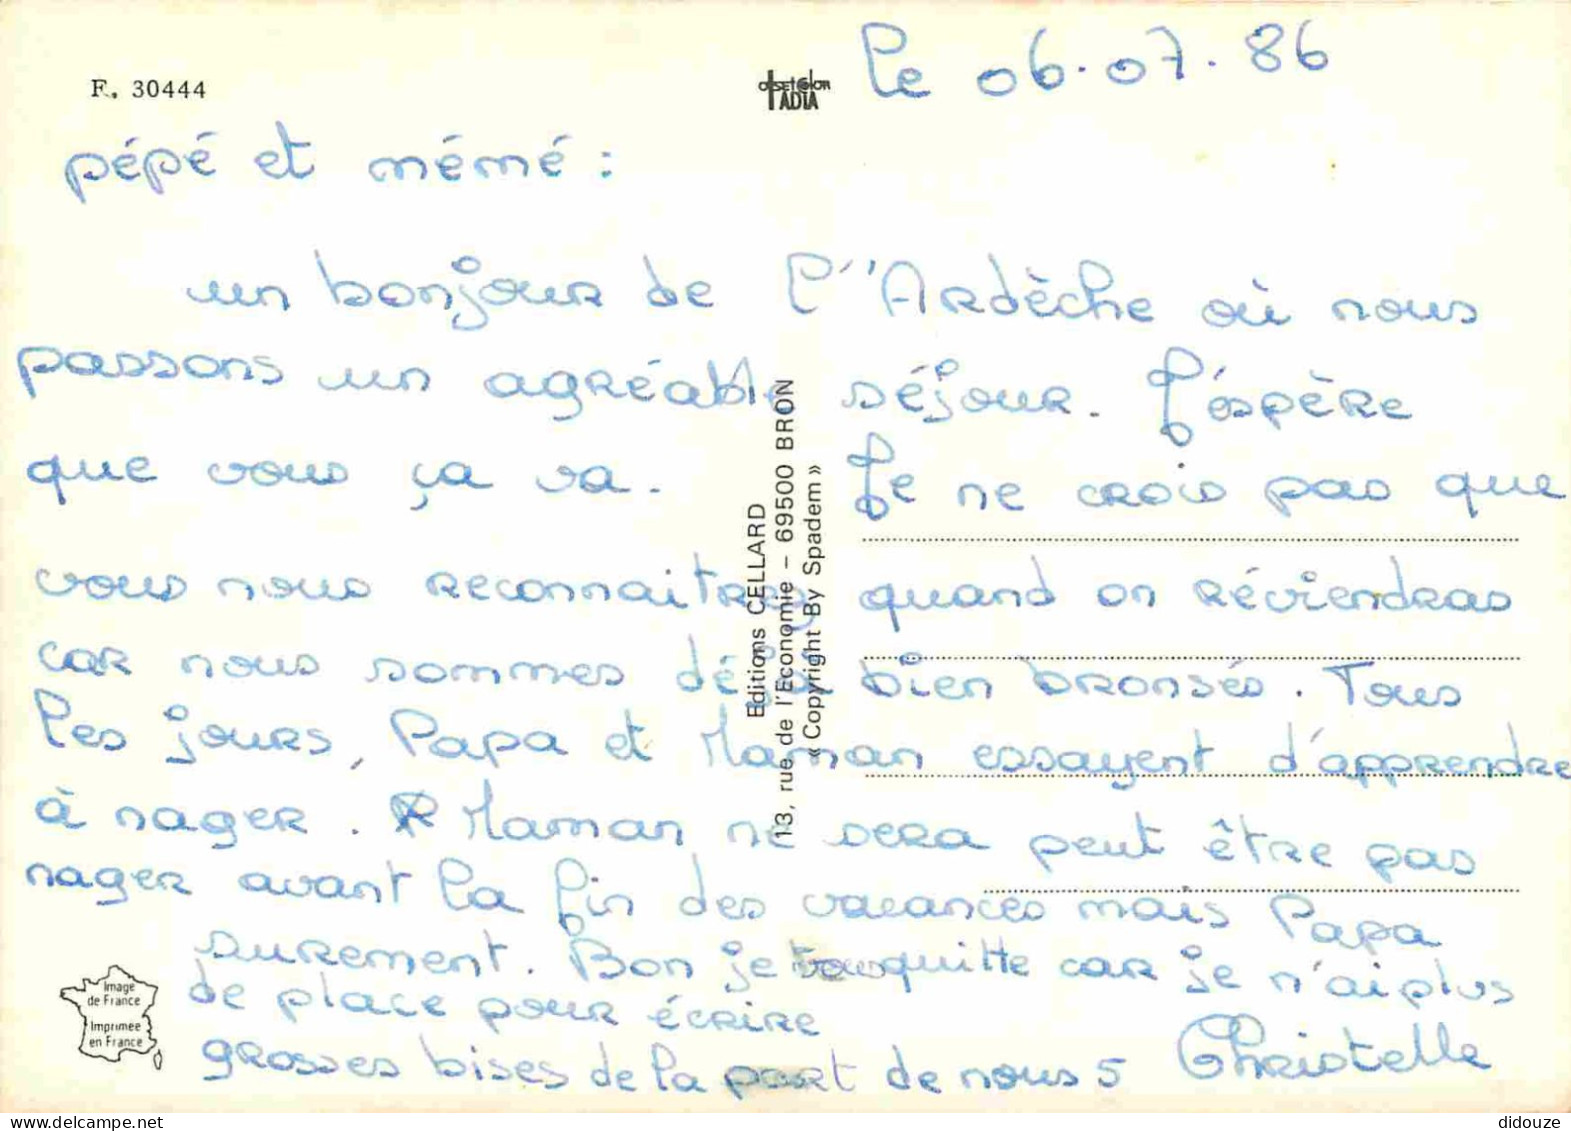 le 06.07.86
F. 30444
OFFSET COLOR
IADIA
pépé et mémé :
un bonjour de l''Ardèche où nous
passons un agréable séjour. J'éspère
que vous ça va. Je ne crois pas que
vous nous reconnaitrez quand on réviendras
car nous sommes déjà bien bronsés. Tous
les jours, Papa et Maman essayent d'apprendre
à nager. Maman ne sera peut être pas
nager avant la fin des vacances mais Papa
surement. Bon je vous quitte car je n'ai plus
de place pour écrire
grosses bises de la part de nous 5 Christelle
Editions CELLARD
13, rue de l'Economie - 69500 BRON
«Copyright By Spadem»
Image
de France
Imprimée
en France
didouze